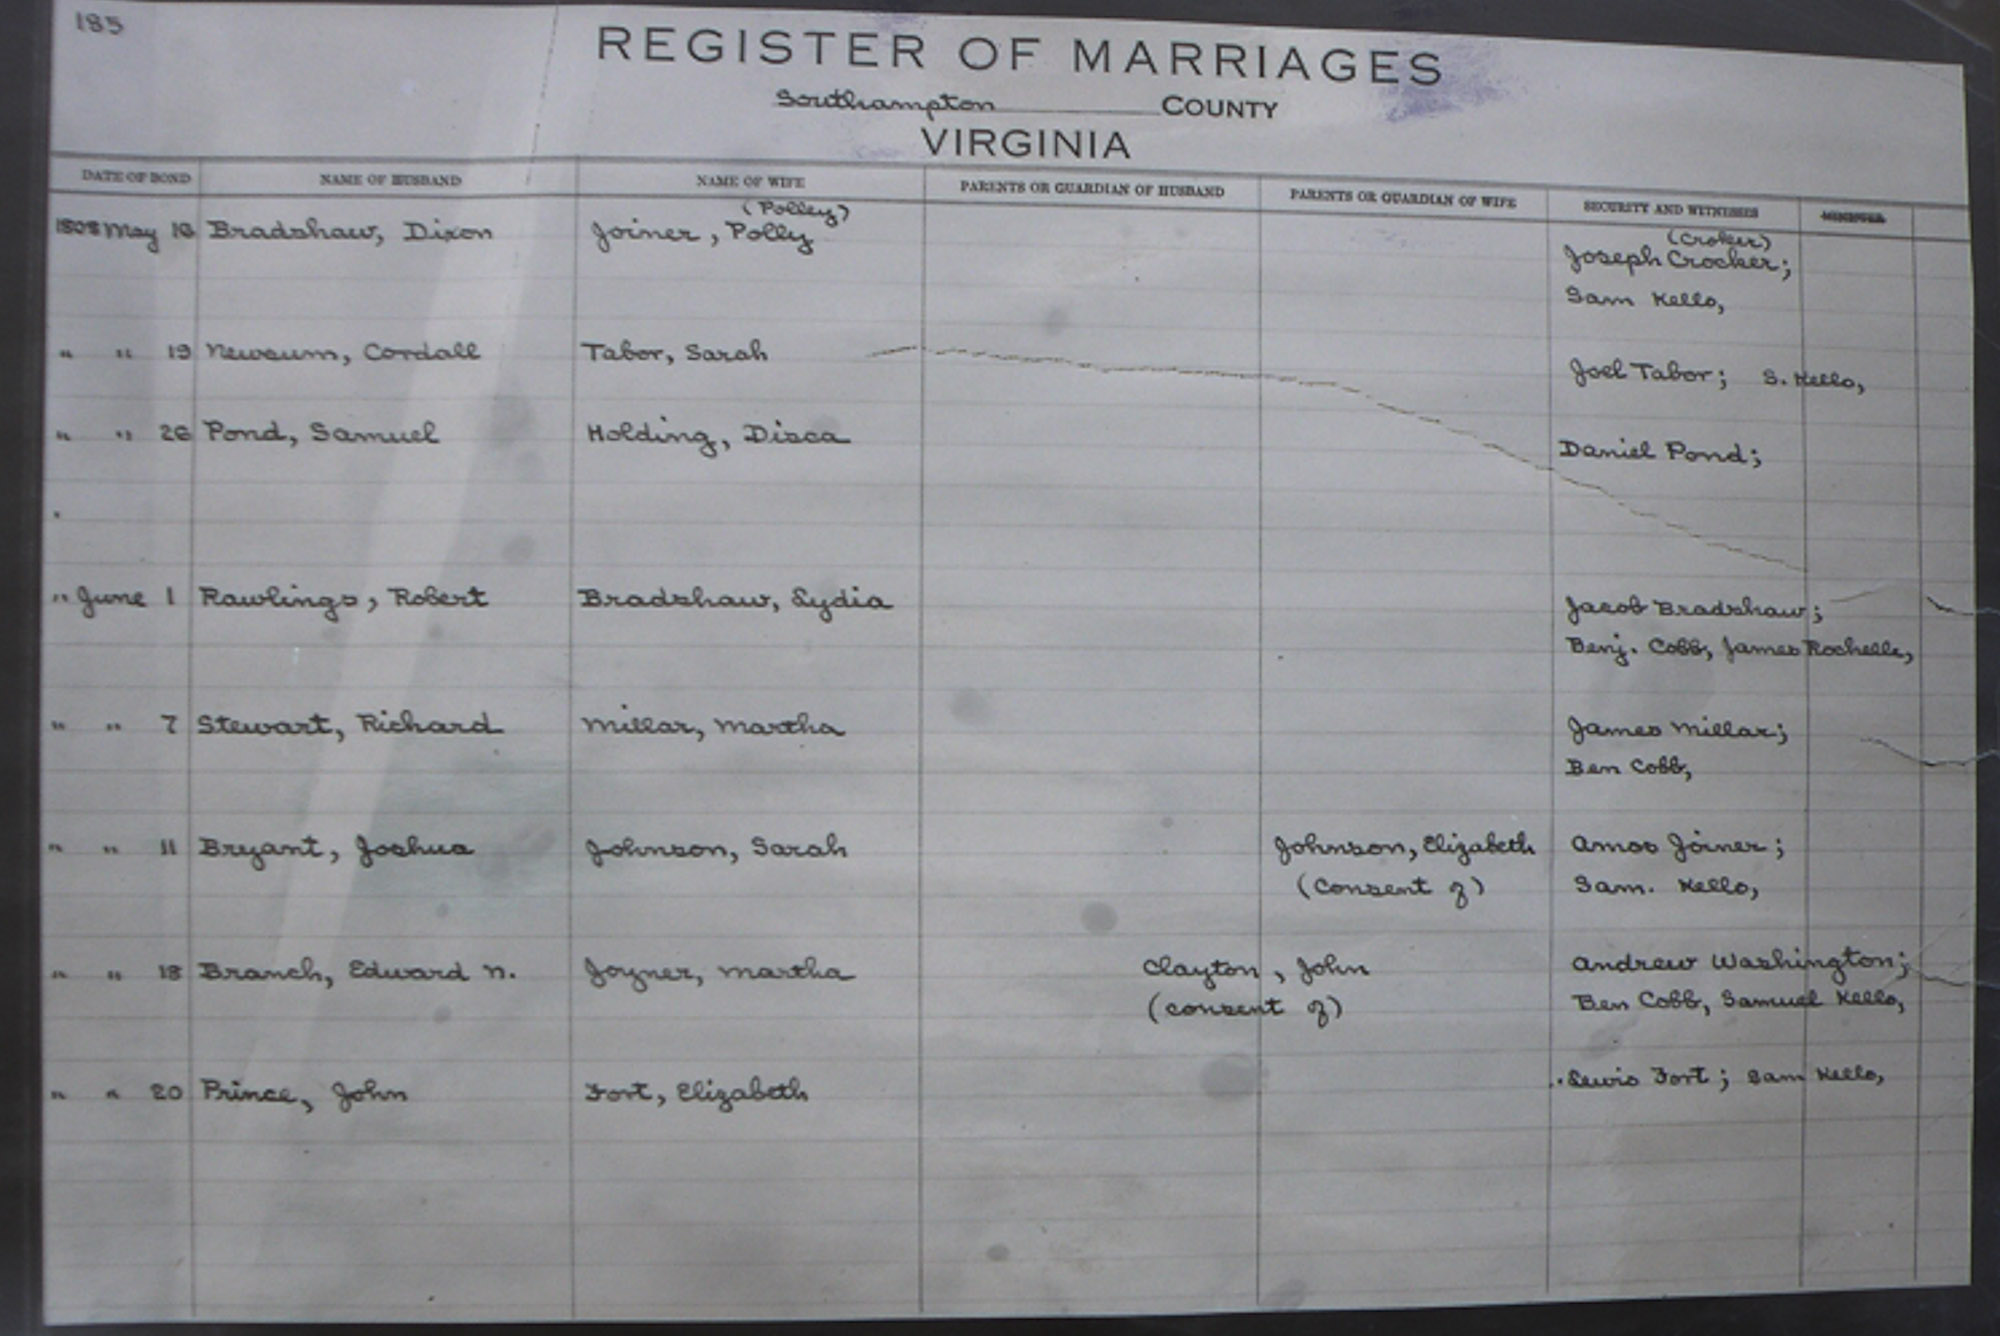 185
REGISTER OF MARRIAGES
Southampton COUNTY
VIRGINIA
DATE OF BOND NAME OF HUSBAND NAME OF WIFE PARENTS OR GUARDIAN OF HUSBAND PARENTS OR GUARDIAN OF WIFE SECURITY AND WITNESSES MINISTER
(Polley) (Croker)
1808 May 18 Bradshaw, Dixon Joiner, Polly Joseph Crocker;
Sam Kello,
" " 19 Newsum, Cordall Tabor, Sarah Joel Tabor; S. Kello,
" " 26 Pond, Samuel Holding, Disca Daniel Pond;
" June 1 Rawlings, Robert Bradshaw, Lydia Jacob Bradshaw;
Benj. Cobb, James Rochelle,
" " 7 Stewart, Richard Millar, Martha James Millar;
Ben Cobb,
" " 11 Bryant, Joshua Johnson, Sarah Johnson, Elizabeth Amos Joiner;
(consent of) Sam. Kello,
" " 18 Branch, Edward N. Joyner, Martha Clayton, John Andrew Washington;
(consent of) Ben Cobb, Samuel Kello,
" " 20 Prince, John Fort, Elizabeth Lewis Fort; Sam Kello,